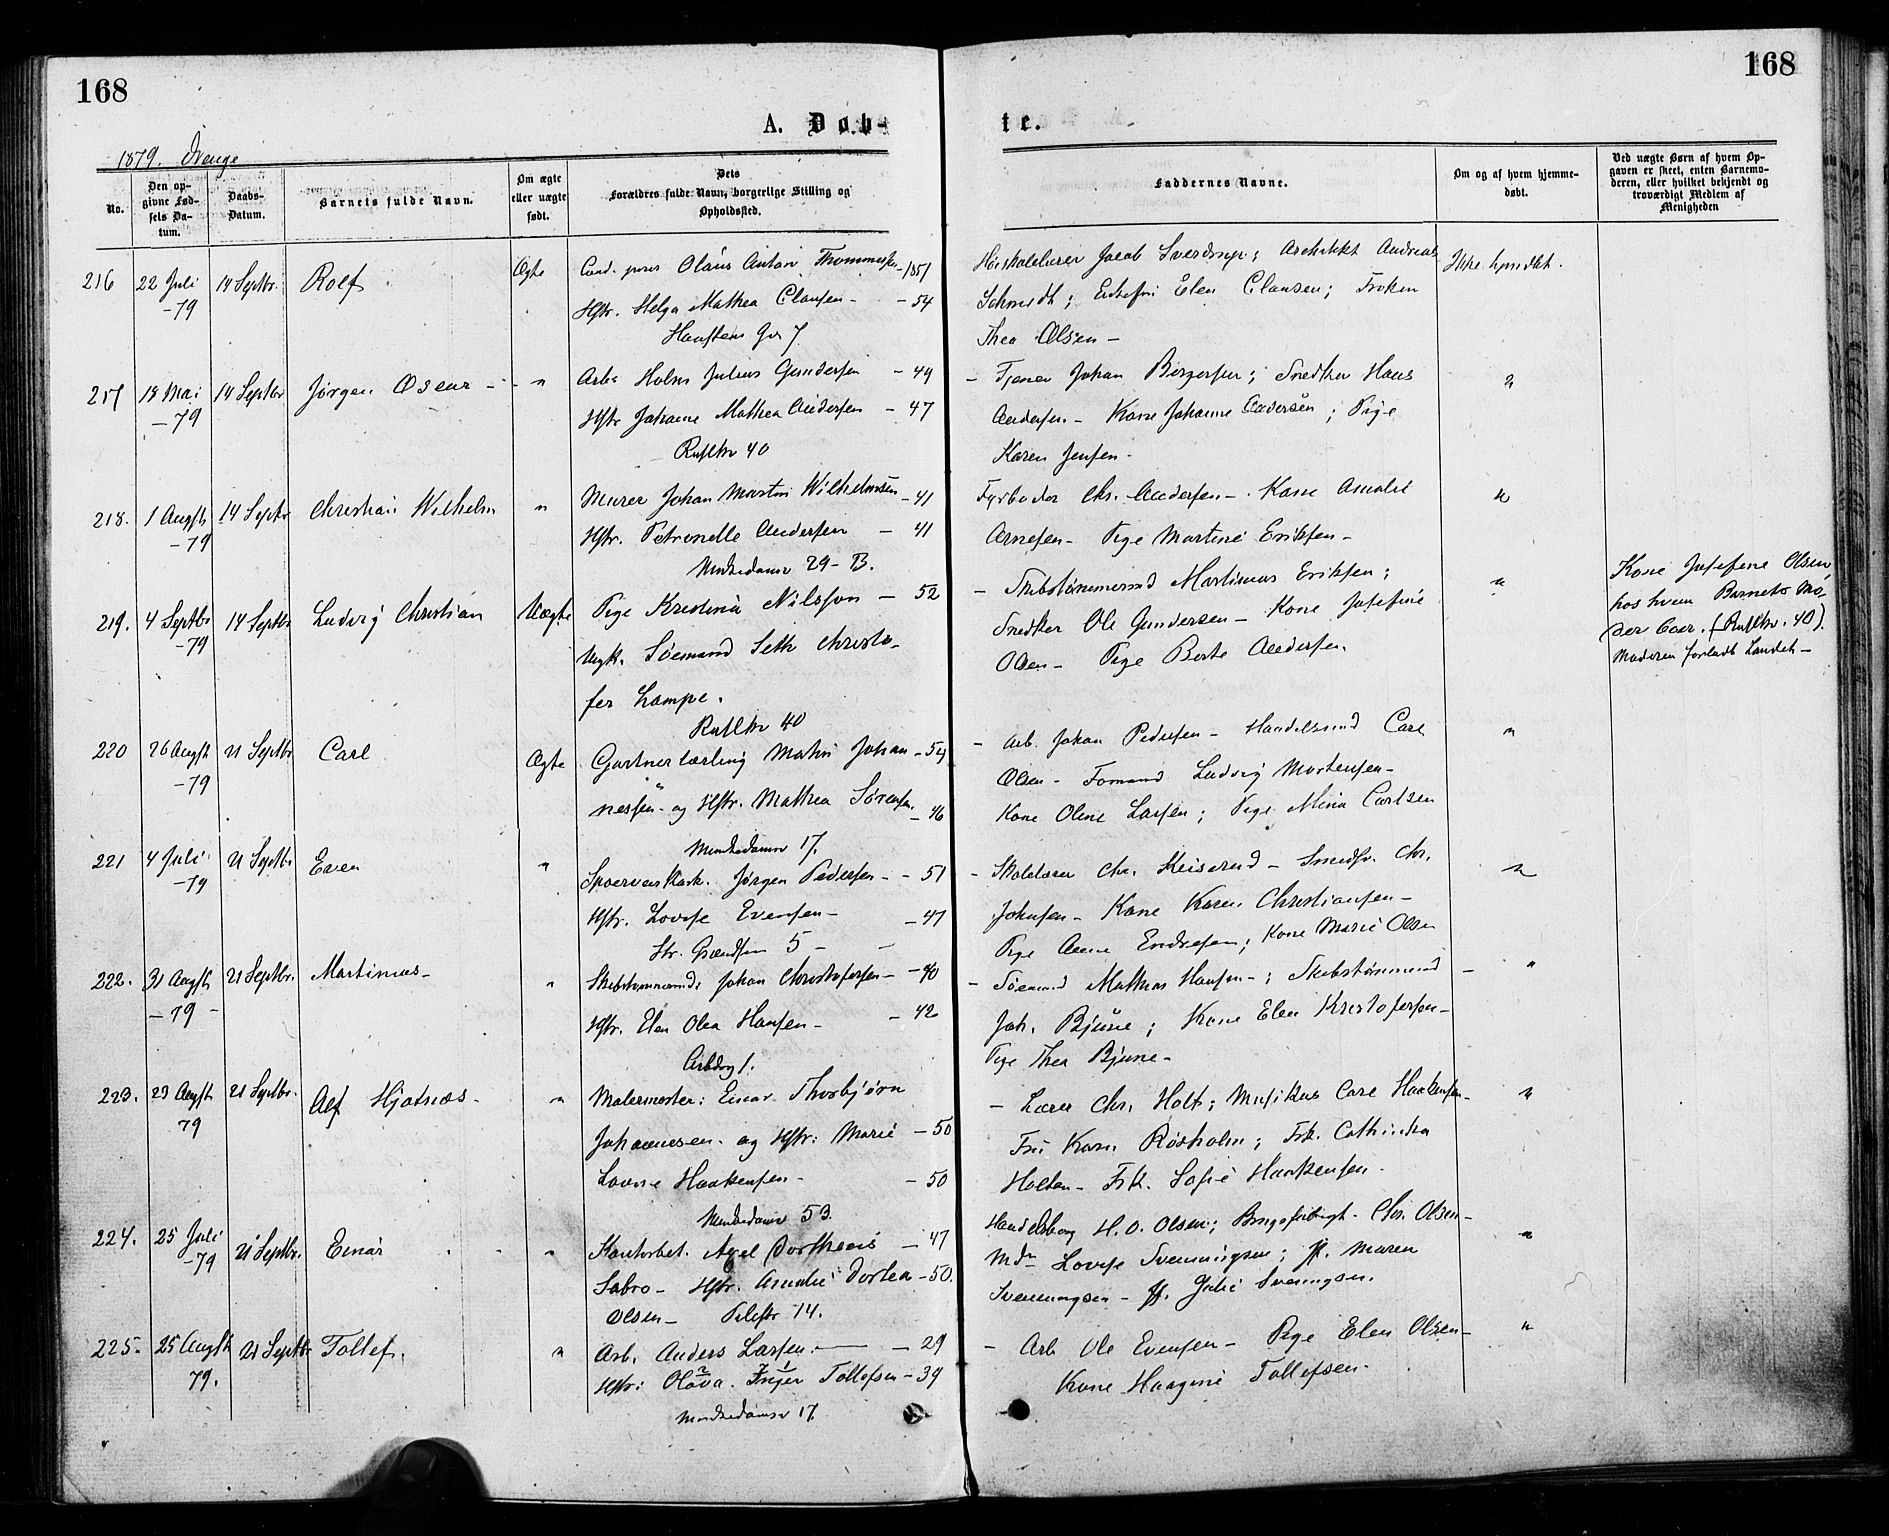 168
168
A. Døb-
te.
1879. Drenge
No.
Den op-
givne Fød-
sels Da-
tum.
Daabs-
Datum.
Barnets fulde Navn.
Om ægte
eller uægte
født.
Dets
Forældres fulde Navn, borgerlige Stilling og
Opholdssted.
Faddernes Navne.
Om og af hvem hjemme-
døbt.
Ved uægte Børn af hvem Op-
gaven er skeet, enten Barnemo-
deren, eller hvilket bekjendt og
troværdigt Medlem af
Menigheden
216 22 Juli 14 Septbr. Rolf Ægte Cand. Olaus Anton Thommesen - 1851
-79
Hstr. Helga Mathea Clausen - - 54
7
Jacob Sverdrup; Arkitekt Andreas
Schmidt; Elen Clausen; Frøken
Thea Olsen -
217 18 Mai 14 Septbr Jørgen Oscar - " Arb. Holm Julius Gundersen - 49
-79
Hstr Johanne Mathea Andersen - 47
Rusløkv 40
- Tjener Johan Birgersen; Snedker Hans
Andersen - Kone Johanne Andersen; Pige
Karen Jensen -
"
218. 1 Augst 14 Septbr Christian Wilhelm " Murer Johan Martin Wilhelmsen - 41
-79
Hstr. Petronelle Andersen - 41
Munkedamsv 29 - B.
Fyrbøder Chr. Andersen - Kone Amalie
Arnesen - Pige Martine Eriksen -
"
219. 4 Septbr 14 Septbr Ludvig Christian Uægte Pige Kristina Nilsson - 52
-79
Ungk. Sømand Seth Christo-
fer Lampe.
Rusløkv 40
- Skibstømmermd Martinus Eriksen;
Snedker Ole Gundersen - Kone Josefine
Olsen - Pige Berte Andersen.
"
Kone Josefine Olsen
hos hvem Barnets Mo-
der boer. (Rusløkv. 40).
Moderen forladt Landet -
220 26 Augst 21 Septbr Carl Ægte Gartnerlærling Johan - 54
-79
nessen - og Hstr. Mathea Sørensen
- 46
Munkedamsv 17.
- Arb. Johan Pedersen - Handelsmd Carl
Olsen - Formand Ludvig Mortensen -
Kone Oline Larsen; Pige Mina Carlsen
"
221 4 Juli 21 Septbr Even " Jørgen Pedersen - - 51
-79
Hstr. Lovise Evensen - - 47
5 -
- Skolelærer Chr. Keiserud - Chr.
Johnsen - Kone Karen Christiansen -
Pige Anne Endresen; Kone Marie Olsen
"
222. 31 Augst 21 Septbr. Martinus - " Skibstømmermd: Johan Christofersen - - 40
-79 -
Hstr. Elen Olea Hansen - - 42
1.
- Sømand Mathias Hansen -; Skibstømmermd -
Joh. Bjune; Kone Elen Kristofersen -
Pige Thea Bjune -
"
223. 23 Augst 21 Septbr. Alf Hjotnæs - " Malermester: Einar Thorbjørn
79
Johannesen - og Hstr: Marie - 50
Lovise Haakensen - - 50
Munkedamsv 53.
- Lærer Chr. Holt; Musikus Carl Haakensen -
Fru Karn Roxholm; Frk. Cathinka
Holten - Frk. Sofie Haakensen -
"
224. 25 Juli 21 Septbr. Einar " Kontorbet. Axel Dortheus - 47
-79
Sabro - Hstr. Amalie Dortea - 50.
Olsen - Pilestr 14.
Handelsborg H. O. Olsen; Chr. Olsen -
Mdm Lovise Svenningsen; Jf. Maren
Svenningsen - Jf. Julie Svenningsen.
"
225. 25 Augst 21 Septbr Tollef. " Arb. Anders Larsen - - 29
79.
2 1
Hstr: Olava Inger Tollefsen - 39
Munkedamsv 17.
- Arb Ole Evensen - Pige Elen Olsen -
Kone Haagine Tollefsen -
"